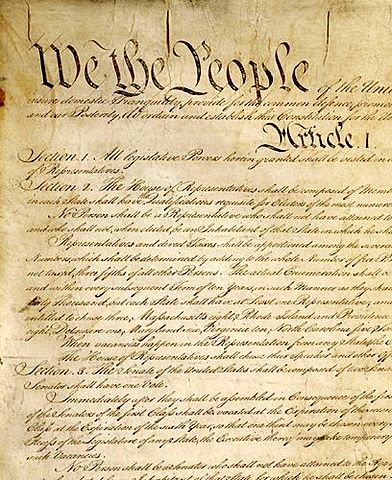 We the People of the Unit
insure domestic Tranquility, provide for the common defence, promo
and our Posterity, do ordain and establish this Constitution for the Un
Article. I.
Section. 1. All legislative Powers herein granted shall be vested in
of Representatives.
Section. 2. The House of Representatives shall be composed of Mem
in each State shall have the Qualifications requisite for Electors of the most numero
No Person shall be a Representative who shall not have attained
and who shall not, when elected, be an Inhabitant of that State in which he sha
Representatives and direct Taxes shall be apportioned among the severa
Numbers, which shall be determined by adding to the whole Number of free P
not taxed, three fifths of all other Persons. The actual Enumeration shall
and within every subsequent Term of ten Years, in such Manner as they sha
thirty Thousand, but each State shall have at Least one Representative; an
entitled to chuse three, Massachusetts eight, Rhode Island and Providence
eight, Delaware one, Maryland six, Virginia ten, North Carolina five, S
When vacancies happen in the Representation from any State, the
The House of Representatives shall chuse their Speaker and other of
Section. 3. The Senate of the United States shall be composed of two Sena
Senator shall have one Vote.
Immediately after they shall be assembled in Consequence of the fir
of the Senators of the first Class shall be vacated at the Expiration of the seco
Class at the Expiration of the sixth Year, so that one third may be chosen every s
Recess of the Legislature of any State, the Executive thereof may make temporar
such Vacancies.
No Person shall be a Senator who shall not have attained to the Age
Inhabitant of that State for which he shall be chosen